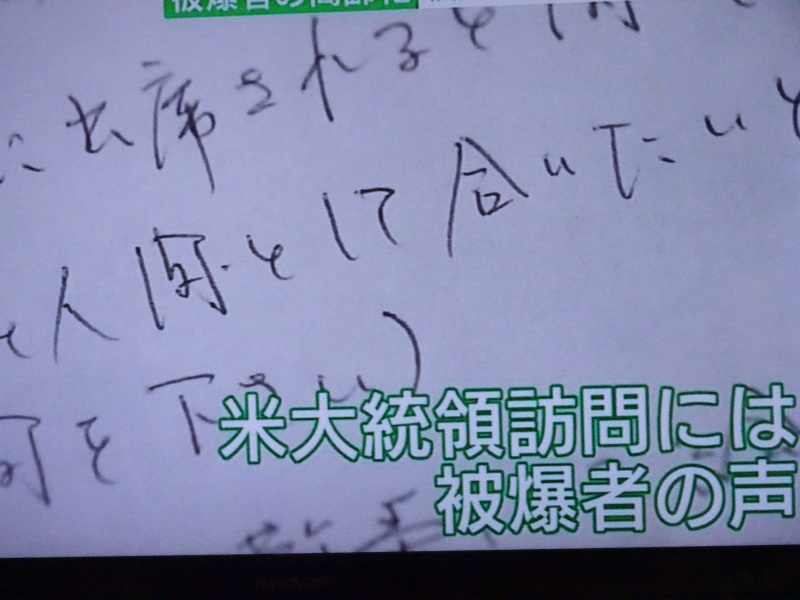 被爆者の高齢化
に出席されると聞
人間として合いたいと
何を下さい)
米大統領訪問には
被爆者の声